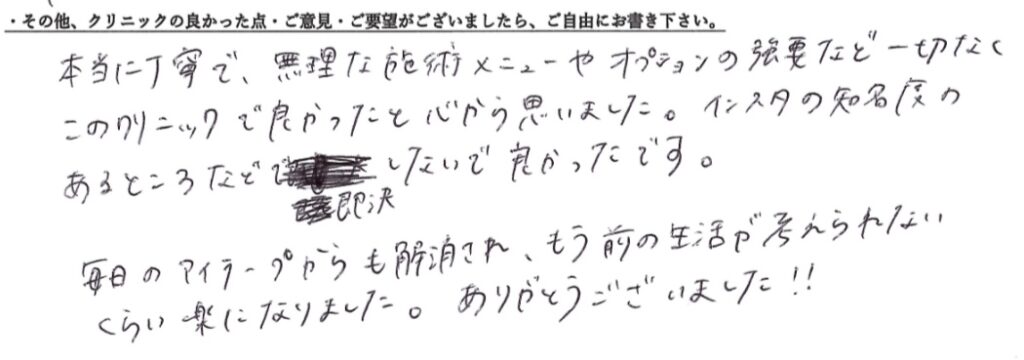 ・その他、クリニックの良かった点・ご意見・ご要望がございましたら、ご自由にお書き下さい。
本当に丁寧で、無理な施術メニューやオプションの強要など一切なく
このクリニックで良かったと心から思いました。インスタの知名度の
あるところなどで しないで良かったです。
即決
毎日のアイテープからも解消され、もう前の生活が考えられない
くらい楽になりました。ありがとうございました!!